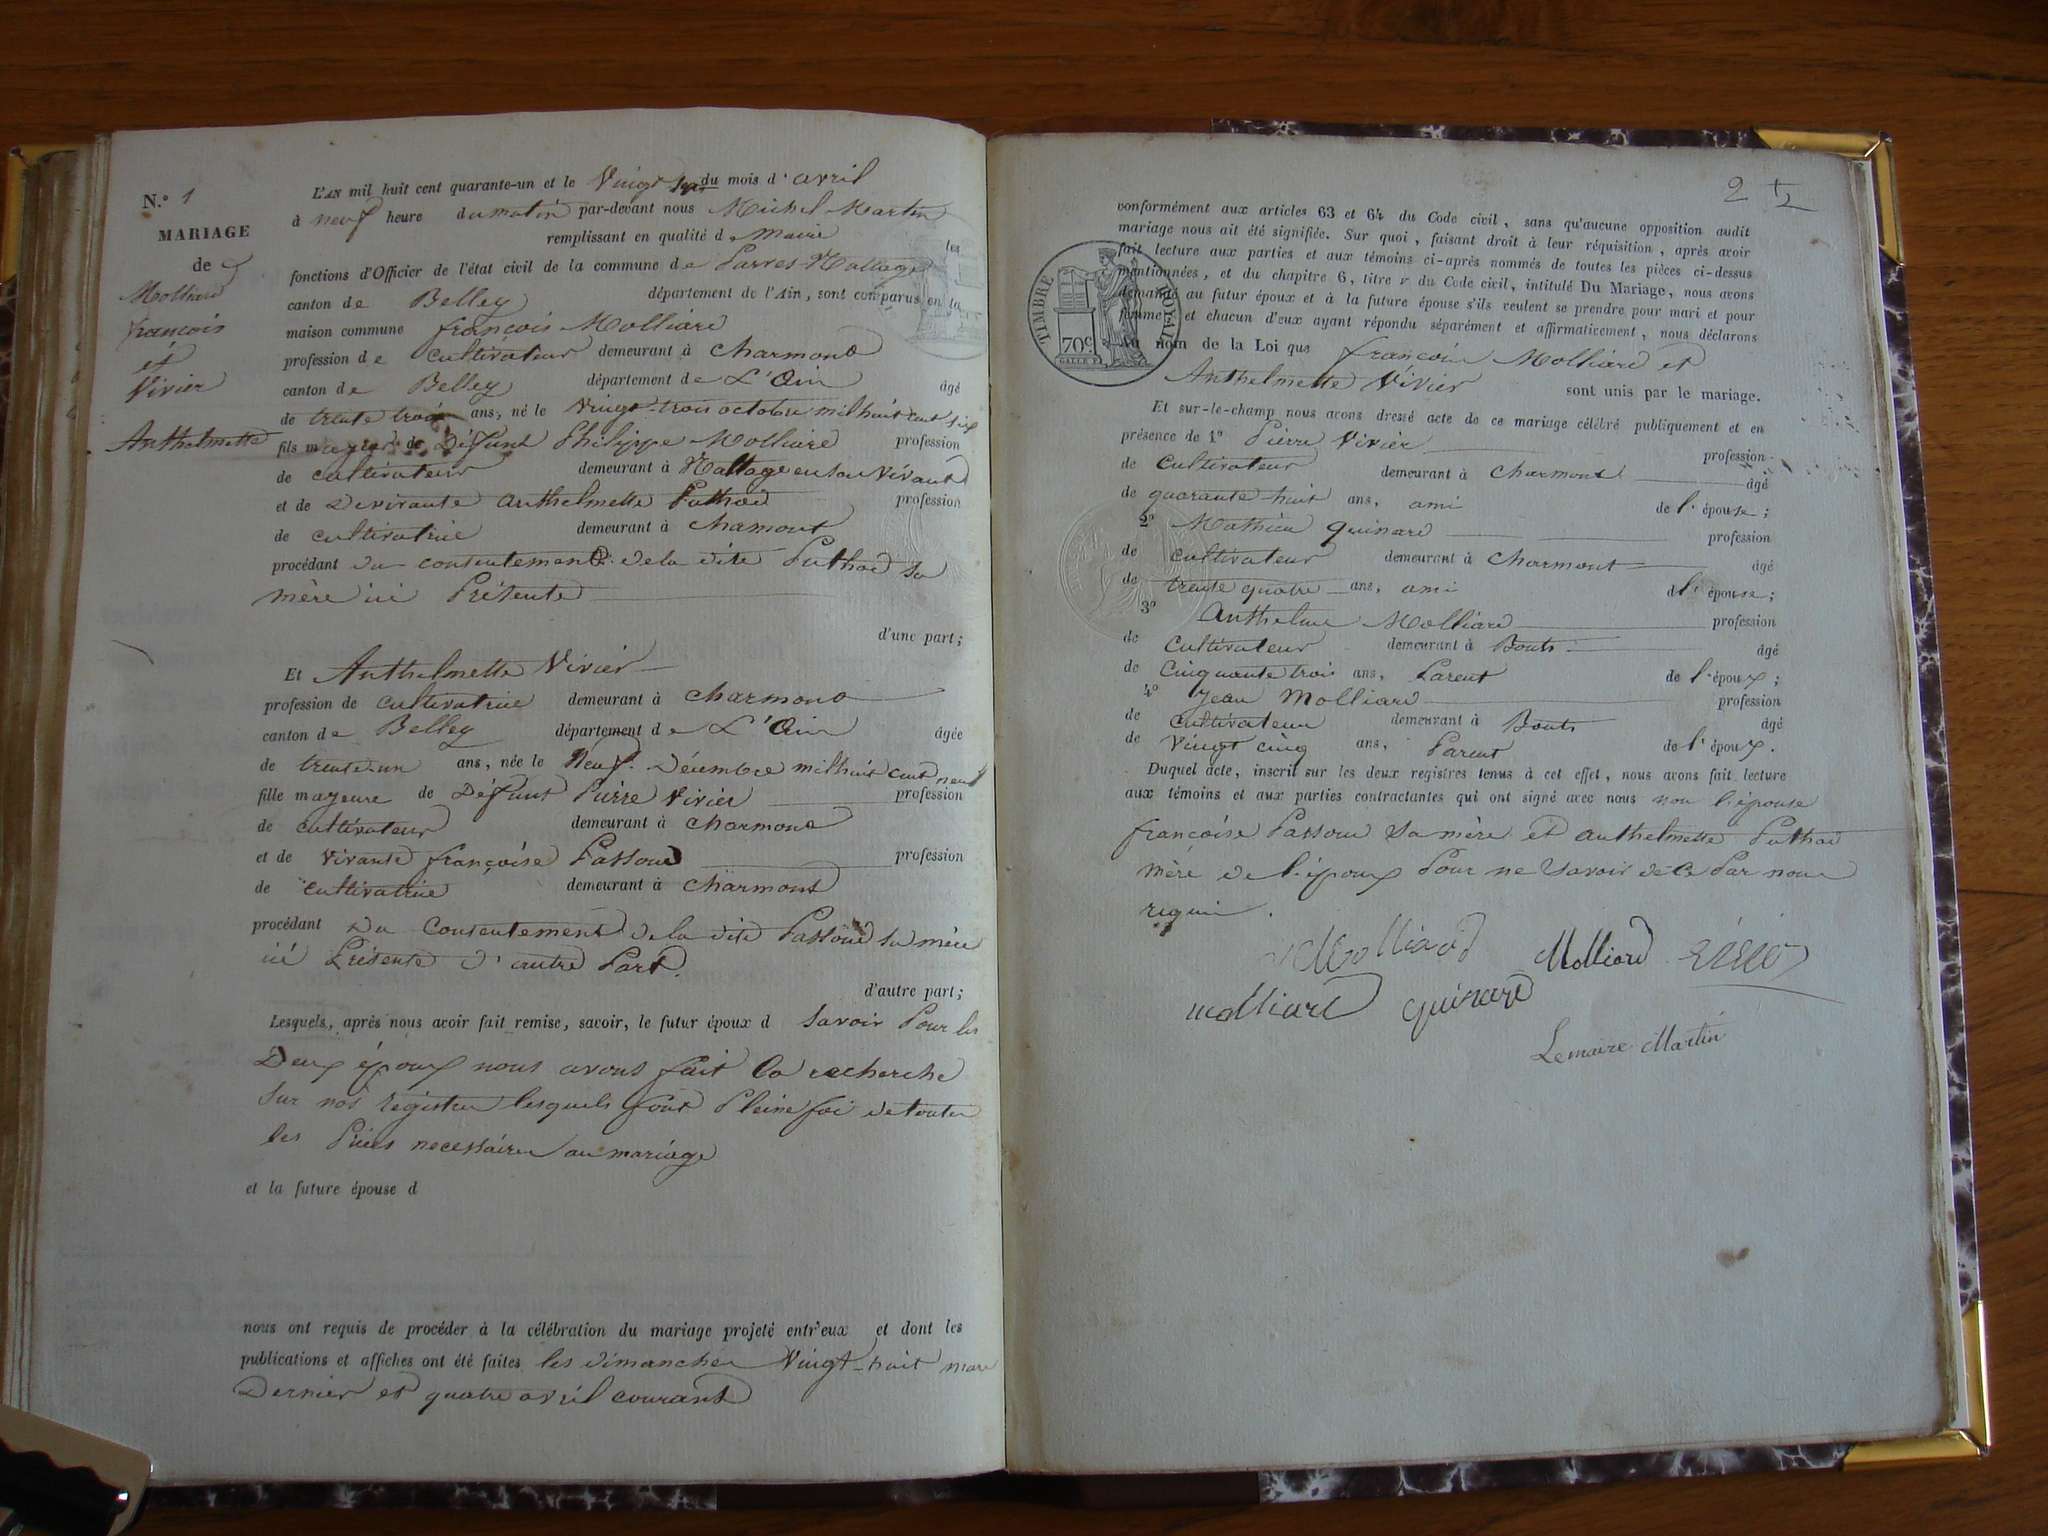 N.° 1
MARIAGE
de
Molliard
françois
et
Vivier
Anthelmette
L'AN mil huit cent quarante-un et le Vingt sept du mois d'avril
à neuf heure du matin par-devant nous Michel Martin
remplissant en qualité de Maire les
fonctions d'Officier de l'état civil de la commune de Parves-Nattage
canton de Belley département de l'Ain, sont comparus en la
maison commune françois Molliard
profession de Cultivateur demeurant à Charmond
canton de Belley département de L'Ain âgé
de trente trois ans, né le Vingt-trois octobre mil huit cent
fils majeur de Défunt Philippe Molliard profession
de cultivateur demeurant à Nattage en son vivant
et de Devivante anthelmette Puthod profession
de cultivatrice demeurant à Charmont
procédant du consentement de la dite Puthod sa
mère ici Présente
d'une part;
Et Anthelmette Vivier
profession de cultivatrice demeurant à Charmond
canton de Belley département de L'Ain âgée
de trente-un ans, née le Neuf Décembre mil huit cent neuf
fille majeure de Défunt Pierre Vivier profession
de cultivateur demeurant à Charmond
et de vivante françoise Passoud profession
de cultivatrice demeurant à Charmont
procédant Du Consentement de la dite Passoud sa mère
ici Présente d'autre Part.
d'autre part;
Lesquels, après nous avoir fait remise, savoir, le futur époux d savoir Pour les
Deux époux nous avons fait la recherche
Sur nos registres lesquels font Pleine foi de toutes
les Pièces necessaires au mariage
et la future épouse d
nous ont requis de procéder à la célébration du mariage projeté entr'eux et dont les
publications et affiches ont été faites les dimanches Vingt-huit mars
Dernier et quatre avril courant
2
conformément aux articles 63 et 64 du Code civil, sans qu'aucune opposition audit
mariage nous ait été signifiée. Sur quoi, faisant droit à leur réquisition, après avoir
fait lecture aux parties et aux témoins ci-après nommés de toutes les pièces ci-dessus
mentionnées, et du chapitre 6, titre v du Code civil, intitulé Du Mariage, nous avons
demandé au futur époux et à la future épouse s'ils veulent se prendre pour mari et pour
femme, et chacun d'eux ayant répondu séparément et affirmativement, nous déclarons
au nom de la Loi que françois Molliard et
Anthelmette Vivier sont unis par le mariage.
TIMBRE ROYAL
70c
Et sur-le-champ nous avons dressé acte de ce mariage célébré publiquement et en
présence de 1° Pierre Vivier profession
de Cultivateur demeurant à Charmont âgé
de quarante huit ans, ami de l'épouse;
2° Mathieu Quinard profession
de cultivateur demeurant à Charmont âgé
de trente quatre ans, ami de l'épouse;
3° Anthelme Molliard profession
de Cultivateur demeurant à Bonts âgé
de Cinquante trois ans, Parent de l'époux;
4° Jean Molliard profession
de Cultivateur demeurant à Bonts âgé
de Vingt cinq ans, Parent de l'époux.
Duquel acte, inscrit sur les deux registres tenus à cet effet, nous avons fait lecture
aux témoins et aux parties contractantes qui ont signé avec nous non l'épouse
françoise Passoud Sa mère et Anthelmette Puthod
mère de l'époux Pour ne Savoir de Ce Par nous
requis.
Molliard Molliard
molliard quinard
Lemaire Martin